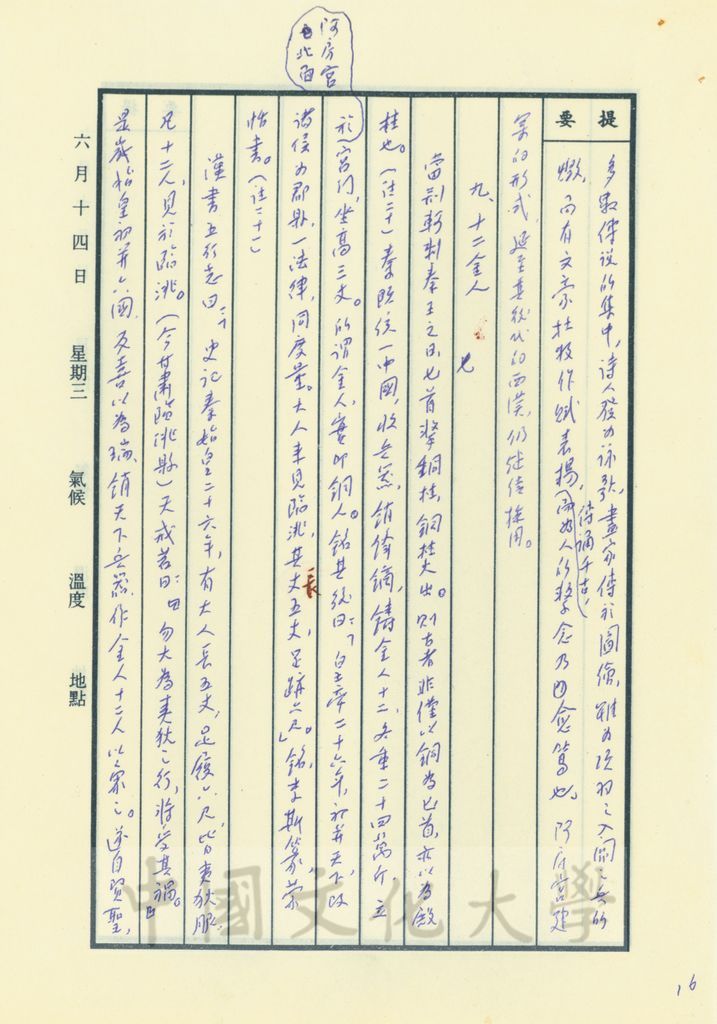 阿房宮
北面
提要
六月十四日 星期三 氣候 溫度 地點
多數傳說的集中,詩人發為詠歌,畫家傳於圖繪,雖為項羽之入關一炬的
燬,而有文豪杜牧作賦表揚,傳誦千古,而好人的懷念乃愈篤也。阿房宮建
築的形式,延至其後代的西漢,仍繼續採用。
九、十二金人
當荊軻刺秦王之日,匕首擊銅柱,銅柱火出。則古者非僅以銅為匕首,亦以為殿
柱也。(注二十)秦既統一中國,收兵器,銷鋒鏑,鑄金人十二,各重二十四萬斤,立
於宮門,坐高三丈。所謂金人,實即銅人。銘其後曰:「皇帝二十六年,初并天下,改
諸侯為郡縣,一法律,同度量。大人來見臨洮,其長五丈,足跡六尺。」銘,李斯篆,蒙
恬書。(注二十一)
漢書五行志曰:「史記秦始皇二十六年,有大人長五丈,足履六尺,皆夷狄服,
凡十二人,見於臨洮。(今甘肅臨洮縣)天戒若曰:勿大為夷狄之行,將受其禍。
是歲始皇初并六國,反喜以為瑞,銷天下兵器,作金人十二人以象之。遂自賢聖,
16
中國文化大學